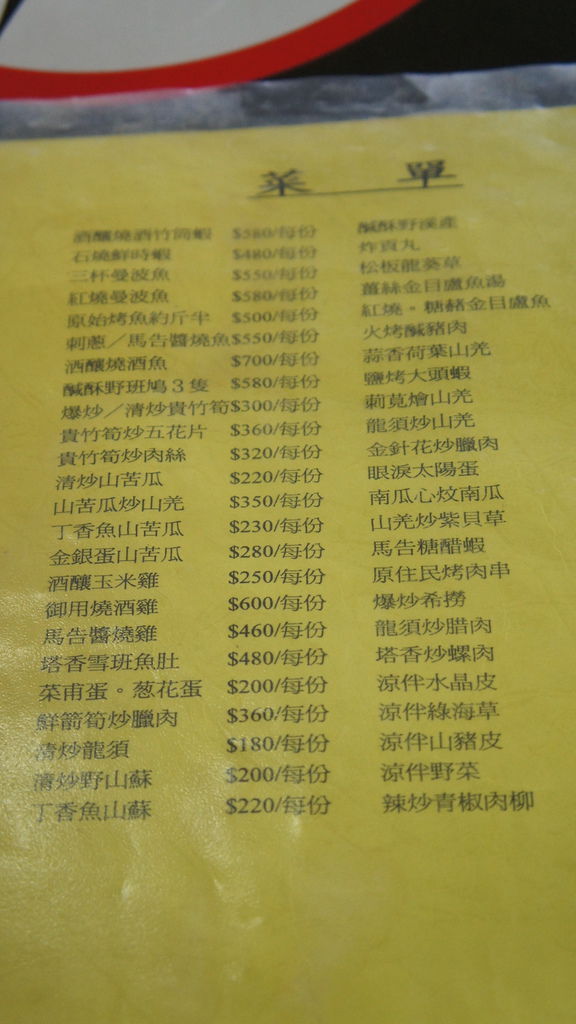 菜 單
酒釀燒酒竹筒蝦 $580/每份 鹹酥野溪產
石燒鮮時蝦 $480/每份 炸貢丸
三杯曼波魚 $550/每份 松板龍葵草
紅燒曼波魚 $580/每份 薑絲金目盧魚湯
原始烤魚約斤半 $500/每份 紅燒。糖赭金目盧魚
刺蔥／馬告醬燒魚 $550/每份 火烤鹹豬肉
酒釀燒酒魚 $700/每份 蒜香荷葉山羌
鹹酥野班鳩3隻 $580/每份 鹽烤大頭蝦
爆炒／清炒貴竹筍 $300/每份 莿莧燴山羌
貴竹筍炒五花片 $360/每份 龍須炒山羌
貴竹筍炒肉絲 $320/每份 金針花炒臘肉
清炒山苦瓜 $220/每份 眼淚太陽蛋
山苦瓜炒山羌 $350/每份 南瓜心炆南瓜
丁香魚山苦瓜 $230/每份 山羌炒紫貝草
金銀蛋山苦瓜 $280/每份 馬告糖醋蝦
酒釀玉米雞 $250/每份 原住民烤肉串
御用燒酒雞 $600/每份 爆炒希撈
馬告醬燒雞 $460/每份 龍須炒腊肉
塔香雪班魚肚 $480/每份 塔香炒螺肉
菜甫蛋。葱花蛋 $200/每份 涼伴水晶皮
鮮箭筍炒臘肉 $360/每份 涼伴綠海草
清炒龍須 $180/每份 涼伴山豬皮
清炒野山蘇 $200/每份 涼伴野菜
丁香魚山蘇 $220/每份 辣炒青椒肉柳